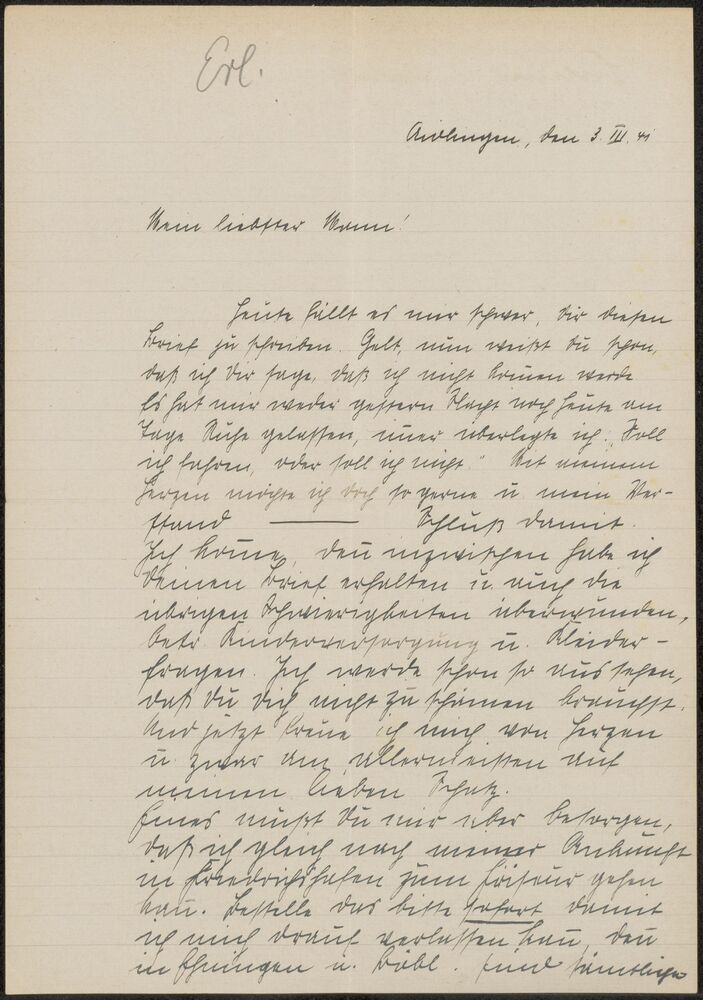 Erl.
Aidlingen, den 3. III. 41
Mein liebster Mann!
Heute fällt es mir schwer, dir diesen
Brief zu schreiben. Gelt, nun weißt du schon,
daß ich dir sage, daß ich nicht kom̄en werde
Es hat mir weder gestern Nacht noch heute am
Tage Ruhe gelassen, im̄er überlegte ich: „Soll
ich fahren, oder soll ich nicht." Mit meinem
Herzen möchte ich doch so gerne u. mein Ver-
stand ——— Schluß damit.
Ich kom̄e, den̄ inzwischen habe ich
Deinen Brief erhalten u. auch die
übrigen Schwierigkeiten überwunden,
betr. Kinderversorgung u. Kleider-
fragen. Ich werde schon so aussehen,
daß du dich nicht zu schämen brauchst.
Und jetzt freue ich mich von Herzen
u. zwar am allermeisten auf
meinen lieben Schatz.
Eines mußt du mir aber besorgen,
daß ich gleich nach meiner Ankunft
in Friedrichshafen zum Friseur gehen
kan̄. Bestelle das bitte sofort damit
ich mich drauf verlassen kan̄, den̄
in Ehningen u. Böbl. sind sämtliche